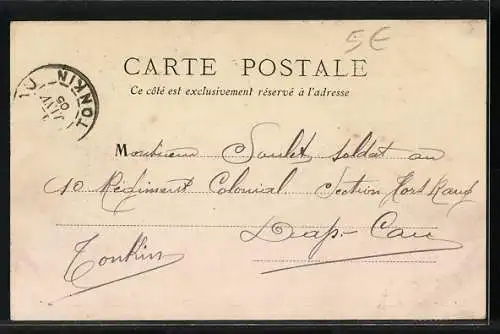 5E
CARTE POSTALE
Ce côté est exclusivement réservé à l'adresse
TONKIN
JANV
05
Monsieur Soulet, soldat au
10 Régiment Colonial Section Hors Rang
Dap-Cau
Tonkin